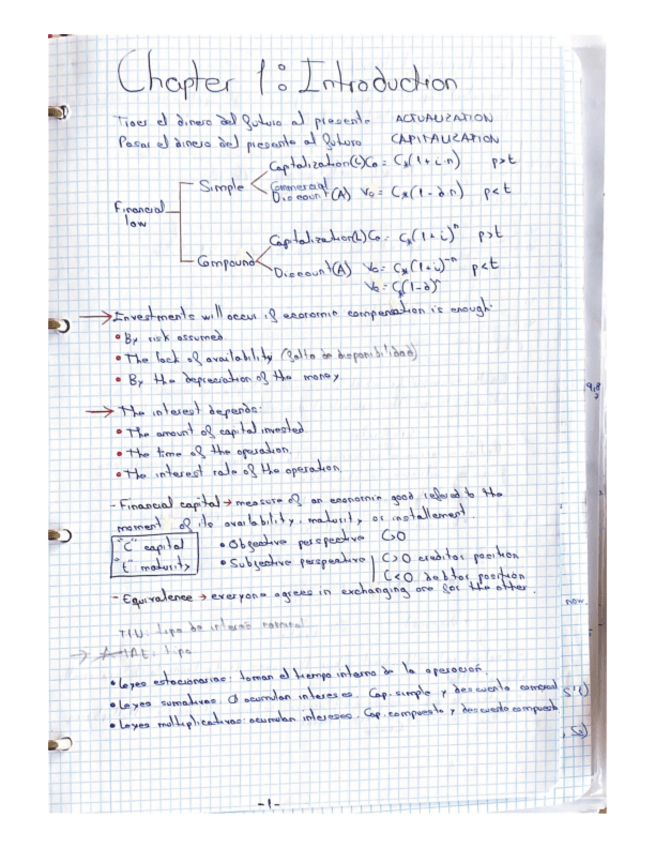 Chapter 1: Introduction
Traer el dinero del futuro al presente ACTUALIZATION
Pasar el dinero del presente al futuro CAPITALIZATION
Financial law
Simple
Capitalization(L) Co = Cs(1+i·n) p>t
Commercial Discount (A) Vo = Cs(1-d·n) p<t
Compound
Capitalization(L) Co = Cs(1+i)^n p>t
Discount(A) Vo = Cs(1+i)^-n p<t
Vo = Cs(1-d)^n
→ Investments will occur if economic compensation is enough:
• By risk assumed
• The lack of availability (falta de disponibilidad)
• By the depreciation of the money
→ The interest depends:
• The amount of capital invested
• The time of the operation
• The interest rate of the operation
- Financial capital → measure of an economic good refered to the
moment of its availability, maturity or installement.
"C" capital • Objective perspective C>0
"t" maturity • Subjective perspective C>0 creditor position
C<0 debtor position
- Equivalence → everyone agrees in exchanging one for the other.
TIN: tipo de interés nominal
→ TAE: tipo
• Leyes estacionarias: toman el tiempo interno de la operación.
• Leyes sumativas: acumulan intereses. Cap. simple y descuento comercial
• Leyes multiplicativas: acumulan intereses. Cap. compuesta y descuento compuesto
-1-